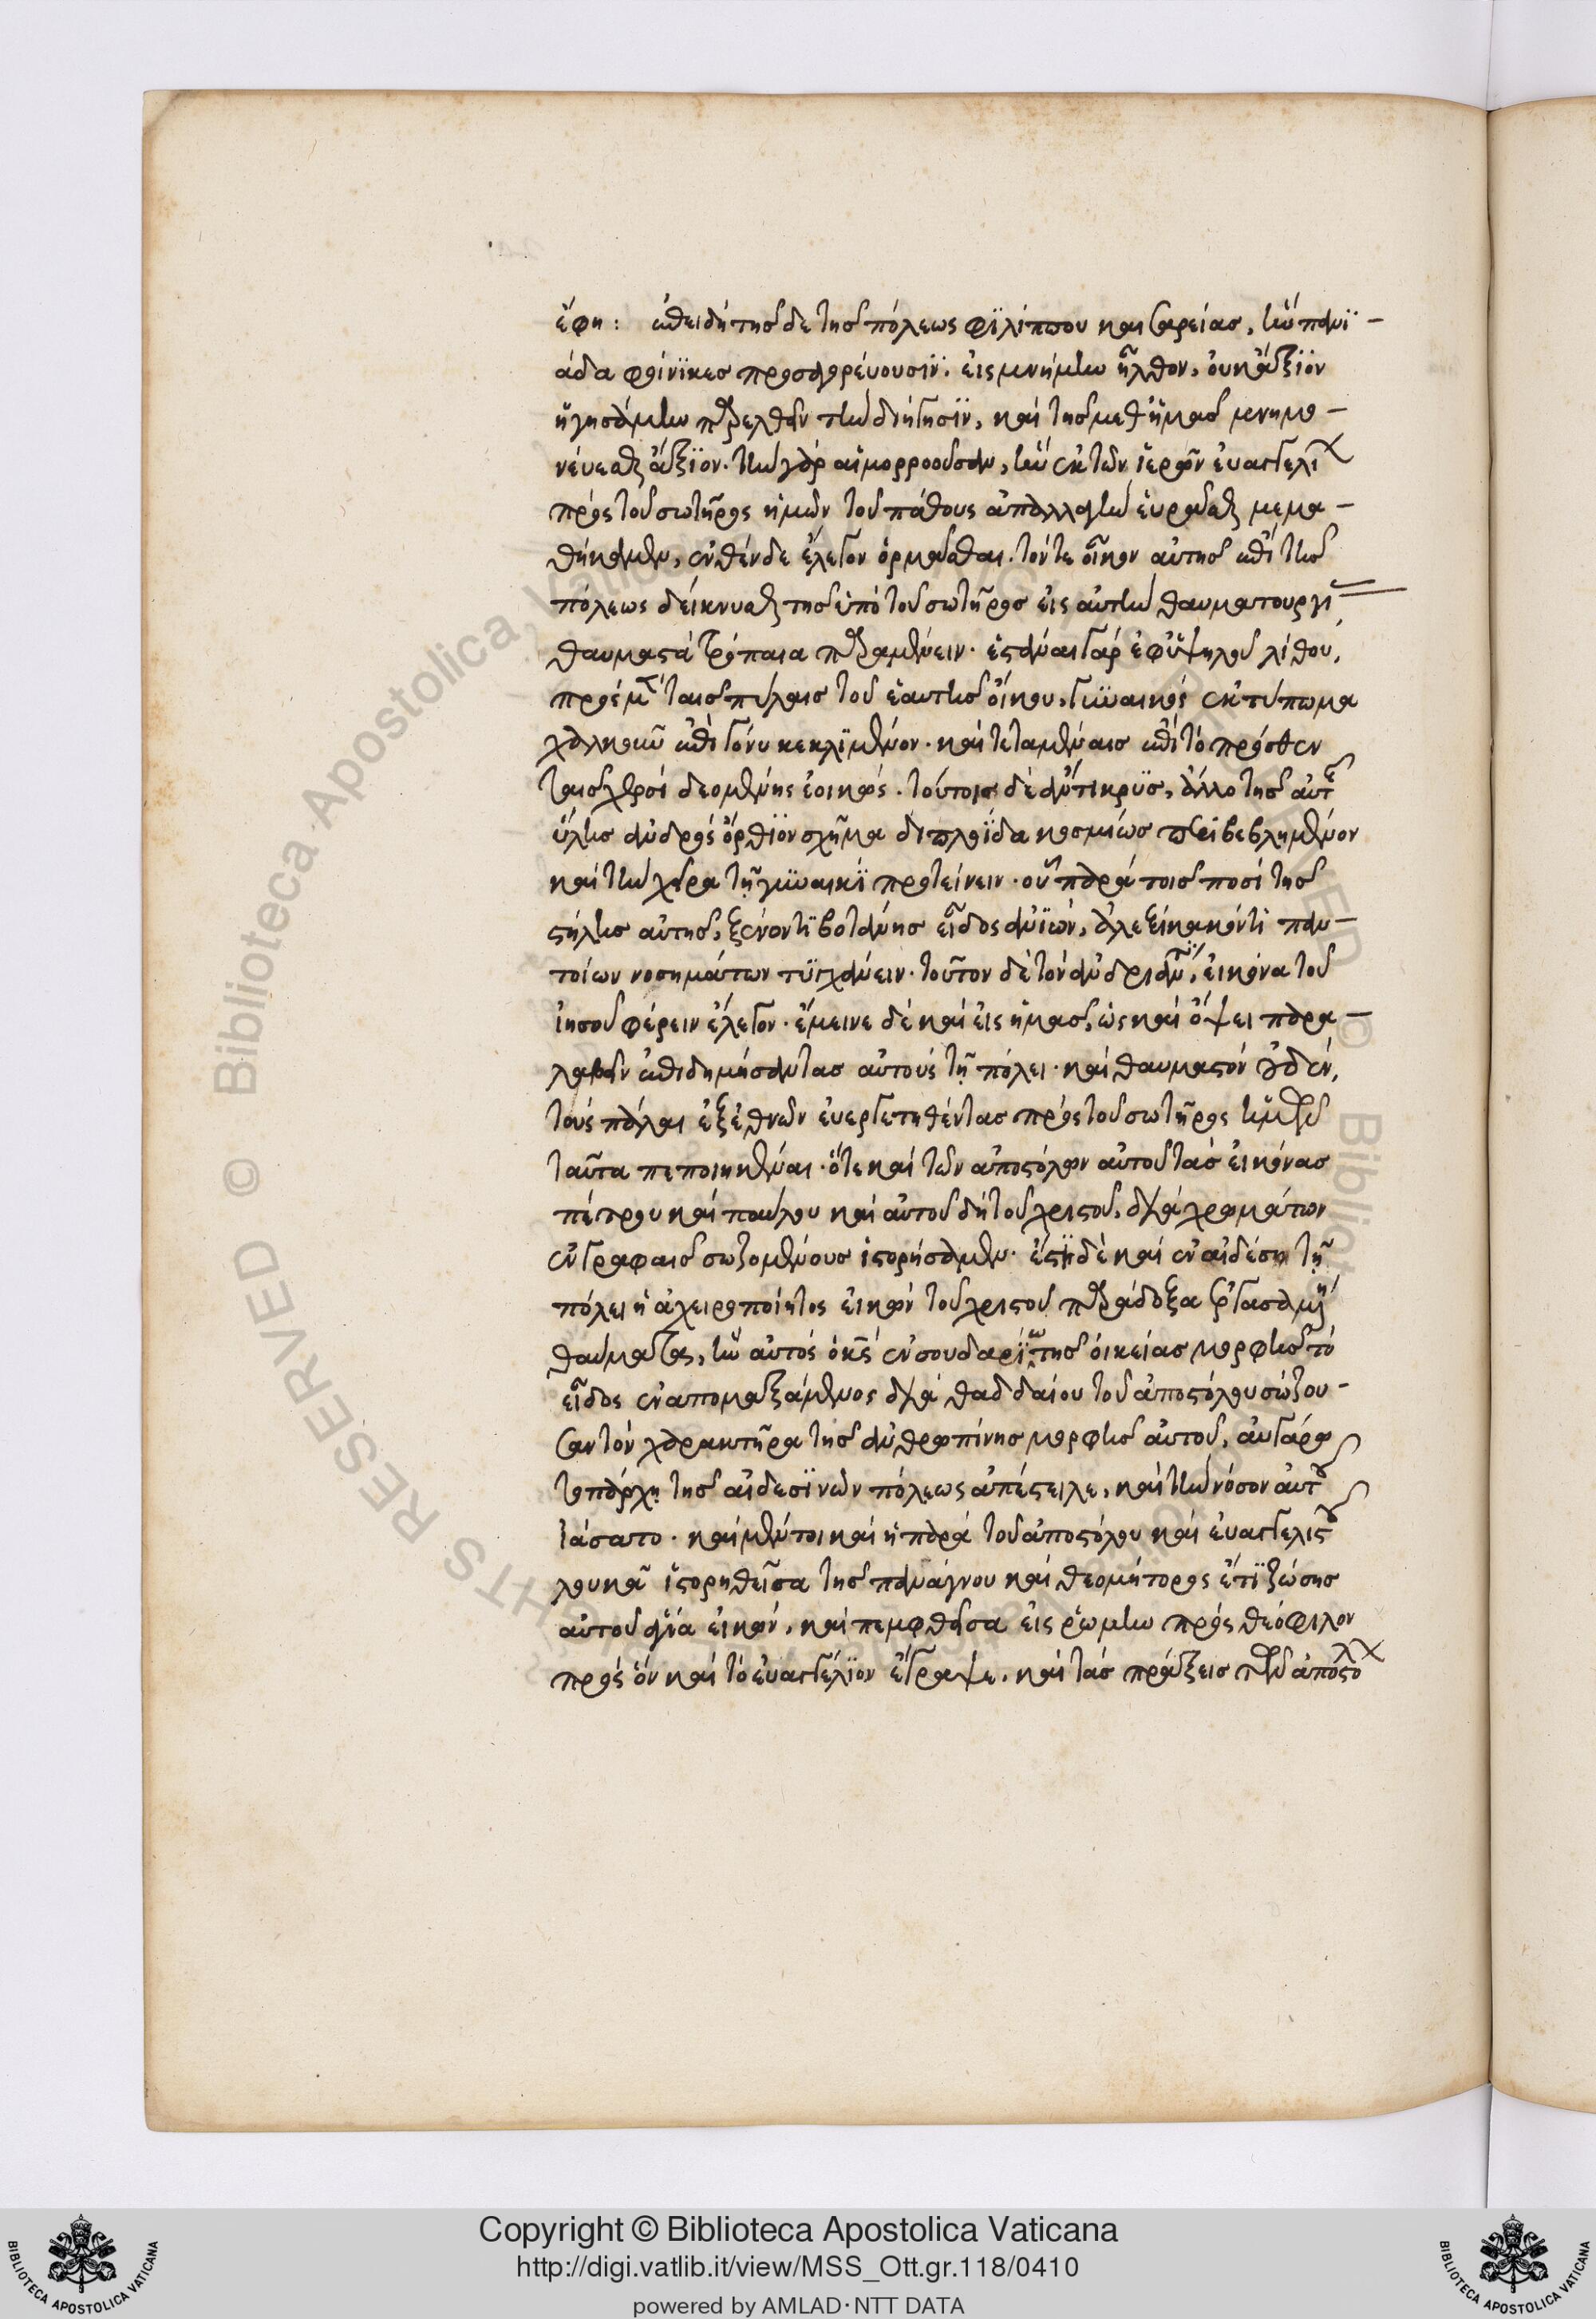 ἔφη: ἐπειδὴ τῆσδε τῆς πόλεως φϊλίππου καισαρείας, ἣν πανϊ-
άδα φοίνϊκες προσαγορέυουσϊν. εἰς μνήμην ἦλθον, ὀυκ ἄξϊον
ἡγησάμην παρελθεῖν τὴν διήγησϊν, καὶ τῆς μεθ ἡμᾶς μνημο-
νέυεσθαι ἄξϊον. τὴν γὰρ αἱμορροοῦσαν, ἣν ἐκ τῶν ἱερῶν ἐυαγγελί
πρὸς τοῦ σωτῆρος ἡμῶν τοῦ πάθους ἀπαλλαγὴν ἑυρᾶσθαι μεμα-
θήκαμεν, ἐνθένδε ἔλεγον ὁρμᾶσθαι. τόν τε οἶκον αὐτῆς ἐπὶ τῆς
πόλεως δείκνυσθαι τῆς ὑπὸ τοῦ σωτῆρος εἰς αὐτὴν θαυματουργί
θαυμαστὰ τρόπαια παραμένειν. ἑστάναι γὰρ ἐφ ὑψηλοῦ λίθου,
πρὸς μὲν ταῖς πύλαις τοῦ ἑαυτῆς ὄικου, γυναικὸς ἐκτύπωμα
χαλκοῦν ἐπὶ γόνυ κεκλϊμένον. καὶ τεταμέναις ἐπὶ τὸ πρόσθεν
ταῖς χερσὶ δεομένης ἐοικὸς. τούτοις δὲ ἄντικρϋς, ἄλλο τῆς αὐτ
ὕλης ἀνδρὸς ὄρθϊον σχῆμα διπλοΐδα κοσμίως περϊβεβλημένον
καὶ τὴν χεῖρα τῇ γυναικὶ προτείνειν. οὗ παρὰ τοῖς ποσὶ τῆς
στήλης αὐτῆς, ξένον τϊ βοτάνης εἶδος ἀνϊὼν, ἀλεξίκακόν τϊ παν-
τοίων νοσημάτων τϋγχάνειν. τοῦτον δὲ τὸν ἀνδριάντα, εἰκόνα τοῦ
ἰησοῦ φέρειν ἔλεγον. ἔμεινε δὲ καὶ εἰς ἡμᾶς, ὡς καὶ ὄψει παρα-
λαβεῖν ἐπιδημήσαντας αὐτοὺς τῇ πόλει. καὶ θαυμαστὸν οὐδὲν,
τοὺς πάλαι ἐξ ἐθνῶν ἐυεργετηθέντας πρὸς τοῦ σωτῆρος ἡμῶν
ταῦτα πεποιηκέναι. ὅτε καὶ τῶν ἀποστόλων αὐτοῦ τὰς εἰκόνας
πέτρου καὶ παύλου καὶ αὐτοῦ δὴ τοῦ χριστοῦ, διὰ χρωμάτων
ἐν γραφαῖς σωζομένους ἱστορήσαμεν. ἔστϊ δὲ καὶ ἐν αἰδέσῃ τῇ
πόλει ἡ ἀχειροποίητος εἰκὼν τοῦ χριστοῦ παράδοξα
θαύματα, ἣν αὐτὸς ὁ κς ἐν σουδαρίω τῆς ὀικείας μορφῆς τὸ
εἶδος ἐναπομαξάμενος διὰ θαδδαίου τοῦ ἀποστόλου σώζου-
σαν τὸν χαρακτῆρα τῆς ἀνθρωπίνης μορφῆς αὐτοῦ, αὐγάρω
τοπάρχῃ τῆς αἰδεσϊνῶν πόλεως ἀπέστειλε, καὶ τὴν νόσον αὐτοῦ
ἰάσατο. καὶ μέντοι καὶ ἡ παρὰ τοῦ ἀποστόλου καὶ ἐυαγγελιστοῦ
λουκᾶ ἱστορηθεῖσα τῆς πανάγνου καὶ θεομήτορος ἔτϊ ζώσης
αὐτοῦ ἁγία εἰκὼν, καὶ πεμφθεῖσα εἰς ῥώμην πρὸς θεόφιλον
πρὸς ὃν καὶ τὸ ἐυαγγέλϊον ἔγραψε, καὶ τὰς πράξεις τῶν ἀποστόλ
Copyright © Biblioteca Apostolica Vaticana
http://digi.vatlib.it/view/MSS_Ott.gr.118/0410
powered by AMLAD·NTT DATA